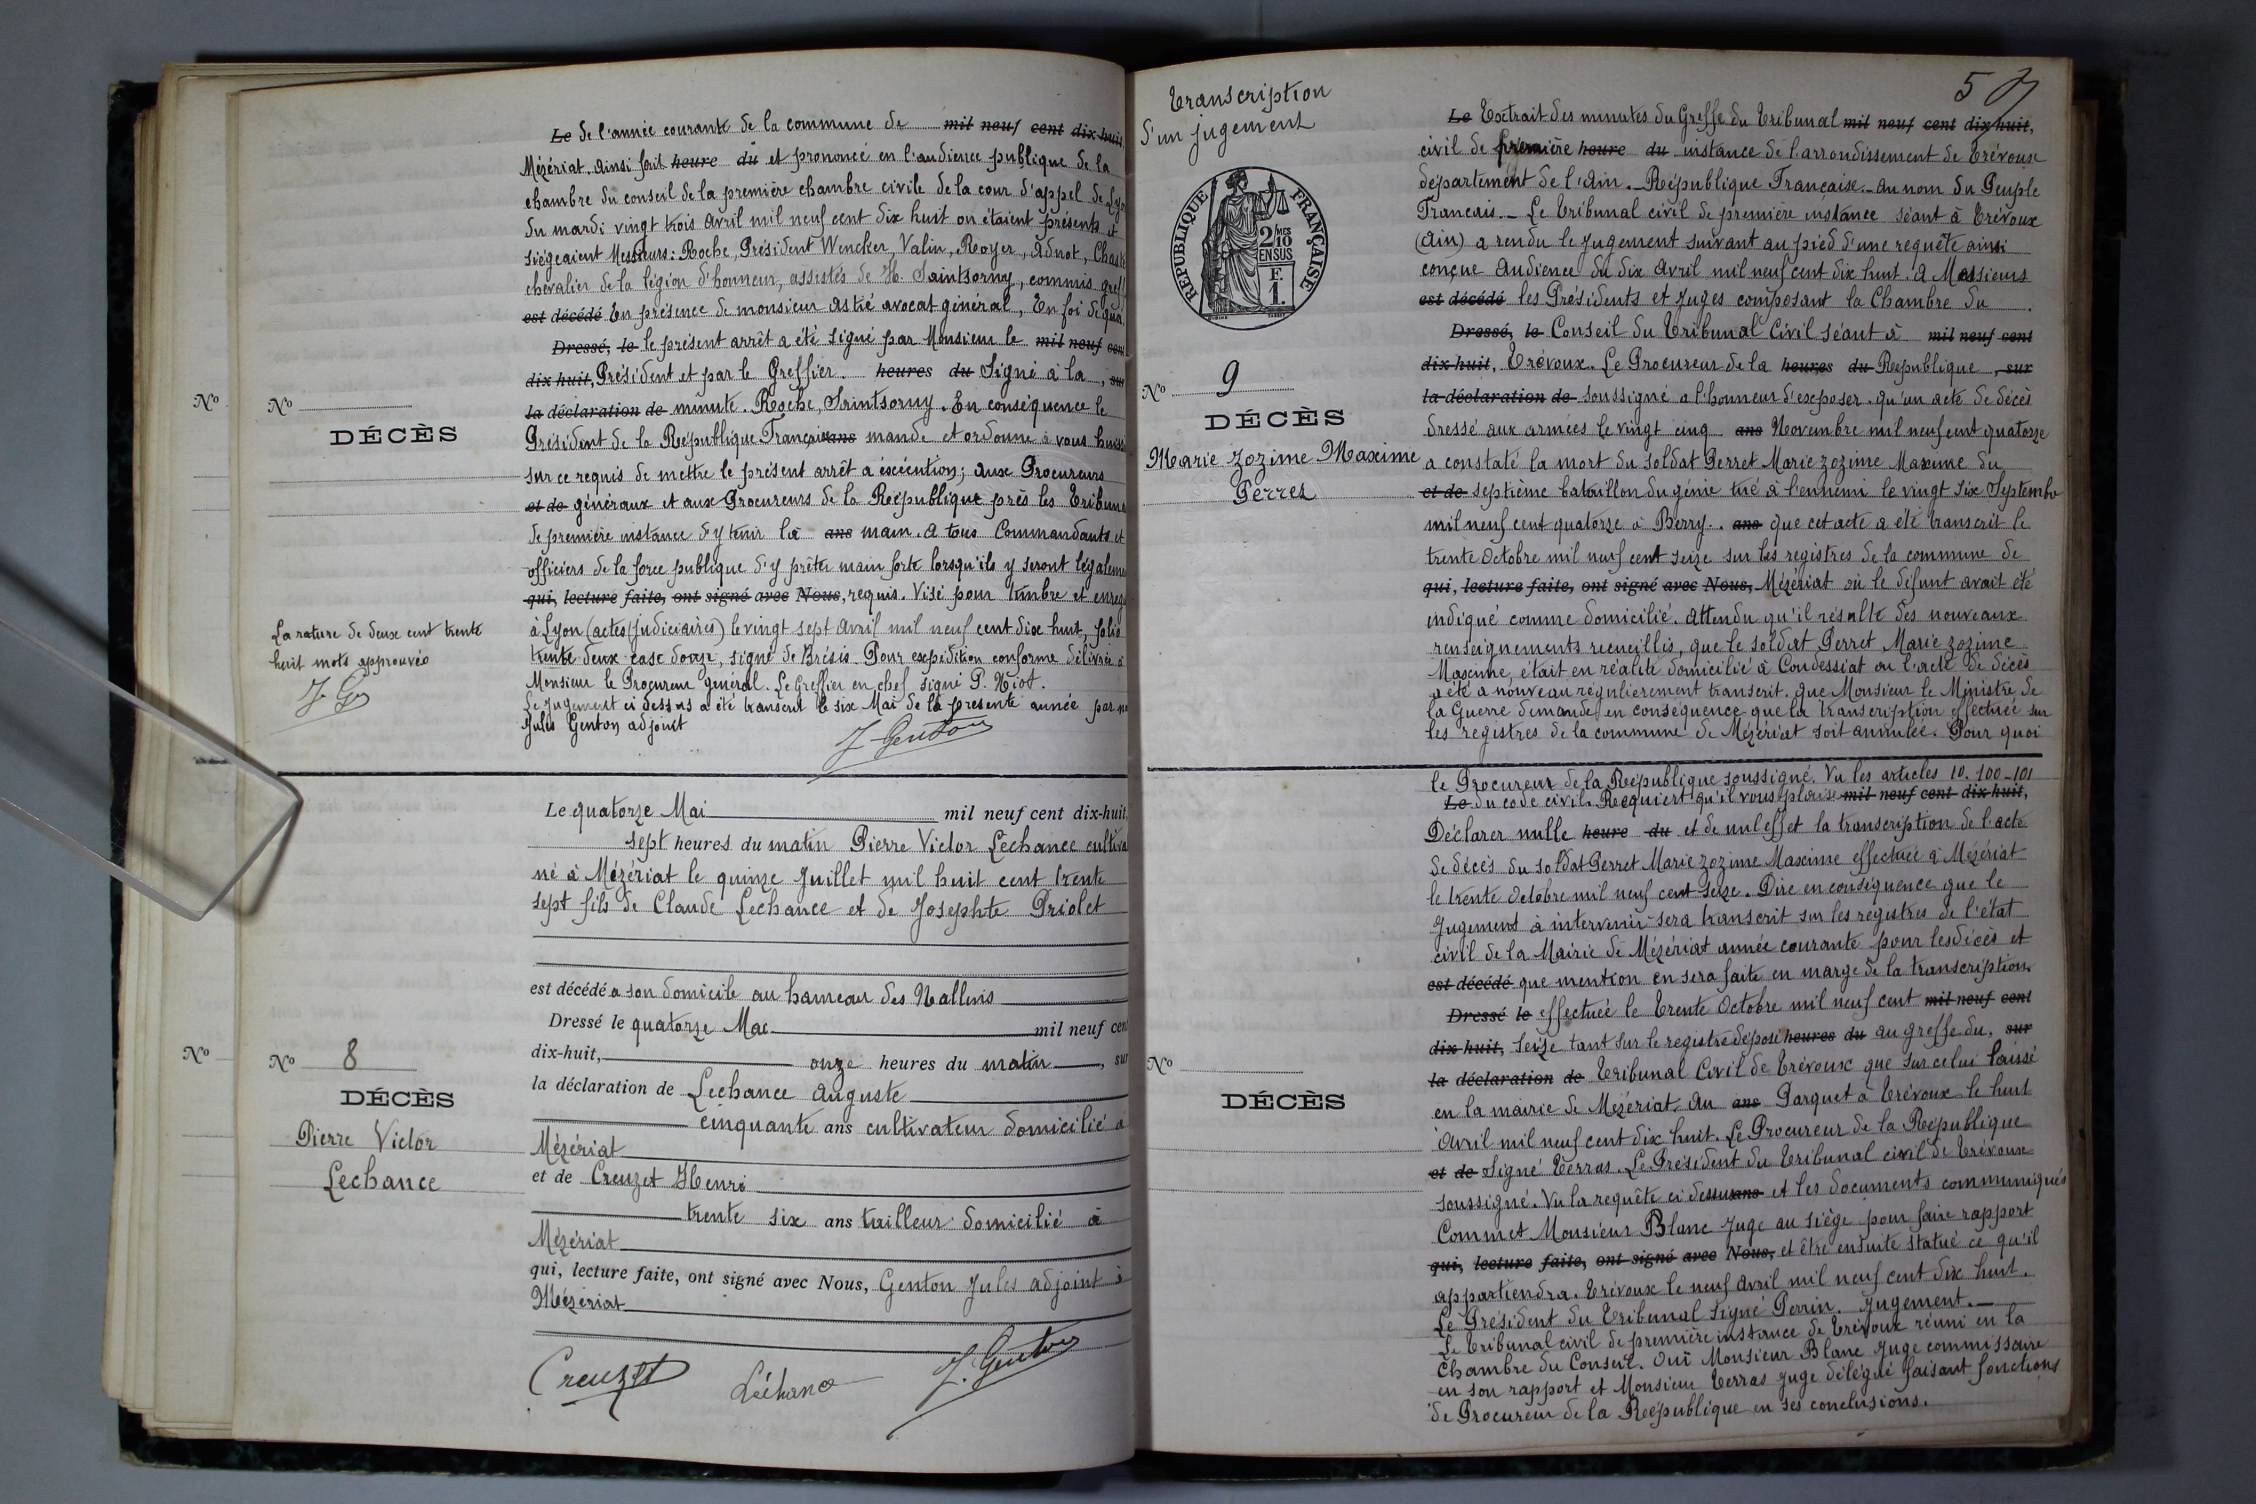 Le de l'année courante de la commune de mil neuf cent dix-huit,
Mézériat. Ainsi fait heure du et prononcé en l'audience publique de la
chambre du conseil de la première chambre civile de la cour d'appel de
du mardi vingt trois Avril mil neuf cent dix huit où étaient présents et
siégeaient Messieurs: Roche, Président Wencker, Valin, Royer, Adnot,
chevalier de la légion d'honneur, assistés de H. Saintsorny, commis
est décédé En présence de monsieur Astié avocat général, En foi de quoi
Dressé, le le présent arrêt a été signé par Monsieur le mil neuf cent
dix-huit, Président et par le Greffier. heures du Signé à la, sur
la déclaration de minute. Roche, Saintsorny. En conséquence le
Président de la République Française ans mande et ordonne à vous
sur ce requis de mettre le présent arrêt à éxécution; aux Procureurs
et de généraux et aux Procureurs de la République près les
de première instance d'y tenir la ans main. A tous Commandants et
officiers de la force publique d'y prêter main forte lorsqu'ils y seront
qui, lecture faite, ont signé avec Nous, requis. Visé pour timbre et
à Lyon (actes judiciaires) le vingt sept Avril mil neuf cent dix huit, folio
trente deux case douze, signé de Brésis. Pour expédition conforme délivrée à
Monsieur le Procureur général. Le Greffier en chef signé P. Niot.
Le jugement ci dessus a été transcrit le six Mai de la présente année par
Jules Genton adjoint
J. Genton
No
No
DÉCÈS
La rature de deux cent trente
huit mots approuvée
J G
Le quatorze Mai mil neuf cent dix-huit,
sept heures du matin Pierre Victor Lechance
né à Mézériat le quinze Juillet mil huit cent trente
sept fils de Claude Lechance et de Josephte Priolet
est décédé a son domicile au hameau des
Dressé le quatorze Mai mil neuf cent
dix-huit, onze heures du matin, sur
la déclaration de Lechance Auguste
cinquante ans cultivateur domicilié à
Mézériat
et de Creuzet Henri
trente six ans tailleur domicilié à
Mézériat
qui, lecture faite, ont signé avec Nous, Genton Jules adjoint à
Mézériat
Creuzet Léchance J. Genton
No
No 8
DÉCÈS
Pierre Victor
Lechance
Transcription
d'un jugement
RÉPUBLIQUE FRANÇAISE
2/10 MES
EN SUS
F.
1.
No 9
DÉCÈS
Marie Zozime Maxime
Perret
5
Le Extrait des minutes du Greffe du Tribunal mil neuf cent dix-huit,
civil de première heure du instance de l'arrondissement de Trévoux
département de l'Ain. République Française. Au nom du Peuple
Français. Le Tribunal civil de première instance séant à Trévoux
(Ain) a rendu le jugement suivant au pied d'une requête ainsi
conçue Audience du dix Avril mil neuf cent dix huit. A Messieurs
est décédé les Présidents et Juges composant la Chambre du
Dressé, le Conseil du Tribunal Civil séant à mil neuf cent
dix-huit, Trévoux. Le Procureur de la heures du République, sur
la déclaration de soussigné a l'honneur d'exposer. qu'un acte de décès
dressé aux armées le vingt cinq ans Novembre mil neuf cent quatorze
a constaté la mort du soldat Perret Marie Zozime Maxime du
et de septième bataillon du génie tué à l'ennemi le vingt six Septembre
mil neuf cent quatorze à Berry. ans que cet acte a été transcrit le
trente Octobre mil neuf cent seize sur les registres de la commune de
qui, lecture faite, ont signé avec Nous, Mézériat où le défunt avait été
indiqué comme domicilié. Attendu qu'il résulte des nouveaux
renseignements recueillis, que le soldat Perret Marie Zozime
Maxime, était en réalité domicilié à Condessiat où l'acte de décès
a été à nouveau régulièrement transcrit. que Monsieur le Ministre de
la Guerre demande en conséquence que la transcription effectuée sur
les registres de la commune de Mézériat soit annulée. Pour quoi
le Procureur de la République soussigné. Vu les articles 10. 100-101
Le du code civil. Requiert qu'il vous plaise mil neuf cent dix-huit,
Déclarer nulle heure du et de nul effet la transcription de l'acte
de décès du soldat Perret Marie Zozime Maxime effectuée à Mézériat
le trente Octobre mil neuf cent seize. Dire en conséquence que le
jugement à intervenir sera transcrit sur les registres de l'état
civil de la Mairie de Mézériat année courante pour les décès et
est décédé que mention en sera faite en marge de la transcription
Dressé le effectuée le trente Octobre mil neuf cent mil neuf cent
dix-huit, seize tant sur le registre déposé heures du au greffe du, sur
la déclaration de Tribunal Civil de Trévoux que sur celui laissé
en la mairie de Mézériat. Au ans Parquet à Trévoux le huit
Avril mil neuf cent dix huit. Le Procureur de la République
et de Signé Terras. Le Président du Tribunal civil de Trévoux
soussigné. Vu la requête ci dessus ans et les documents communiqués
Commet Monsieur Blanc Juge au siège pour faire rapport
qui, lecture faite, ont signé avec Nous, et être ensuite statué ce qu'il
appartiendra. Trévoux le neuf Avril mil neuf cent dix huit.
Le Président du Tribunal signé Perrin. Jugement.
Le Tribunal civil de première instance de Trévoux réuni en la
Chambre du Conseil. Ouï Monsieur Blanc Juge commissaire
en son rapport et Monsieur Terras juge délégué faisant fonctions
de Procureur de la République en ses conclusions.
No
DÉCÈS